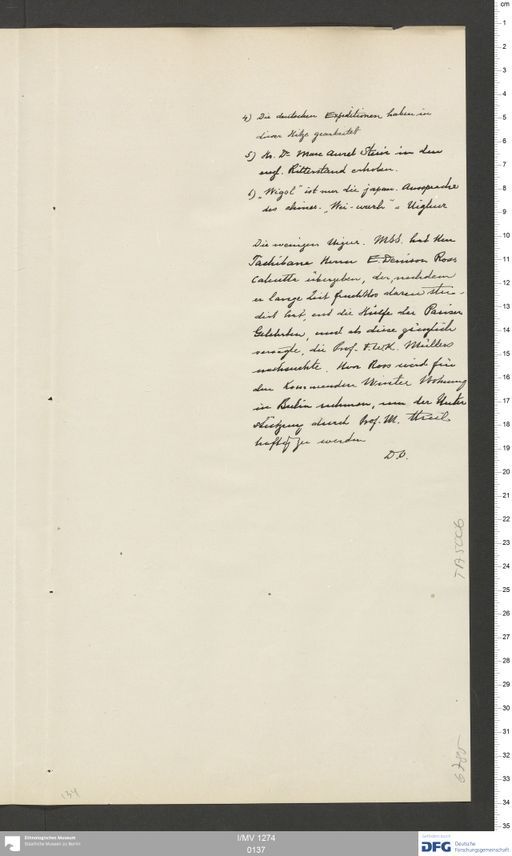 4) Die deutschen Expeditionen haben in
dieser Hitze gearbeitet
5) Hr. Dr. Marc Aurel Stein in den
engl. Ritterstand erhoben.
6) „Wigol" ist nur die japan. Aussprache
des chines. „Wei-wurh" = Uighur
Die wenigen Uigur. MSS. hat Herr
Tachibana Herrn E. Denison Ross
Calcutta übergeben, der, nachdem
er lange Zeit fruchtlos daran stu-
dirt hat, erst die Hülfe der Pariser
Gelehrten, und als diese gänzlich
versagte, die Prof. F.W.K. Müllers
nachsuchte. Herr Ross wird für
den kommenden Winter Wohnung
in Berlin nehmen, um der Unter
stützung durch Prof. M. theil
haftig zu werden
D.O.
TA 5006
6785
134
Ethnologisches Museum
Staatliche Museen zu Berlin
I/MV 1274
0137
Gefördert durch
DFG Deutsche
Forschungsgemeinschaft
cm
1
2
3
4
5
6
7
8
9
10
11
12
13
14
15
16
17
18
19
20
21
22
23
24
25
26
27
28
29
30
31
32
33
34
35